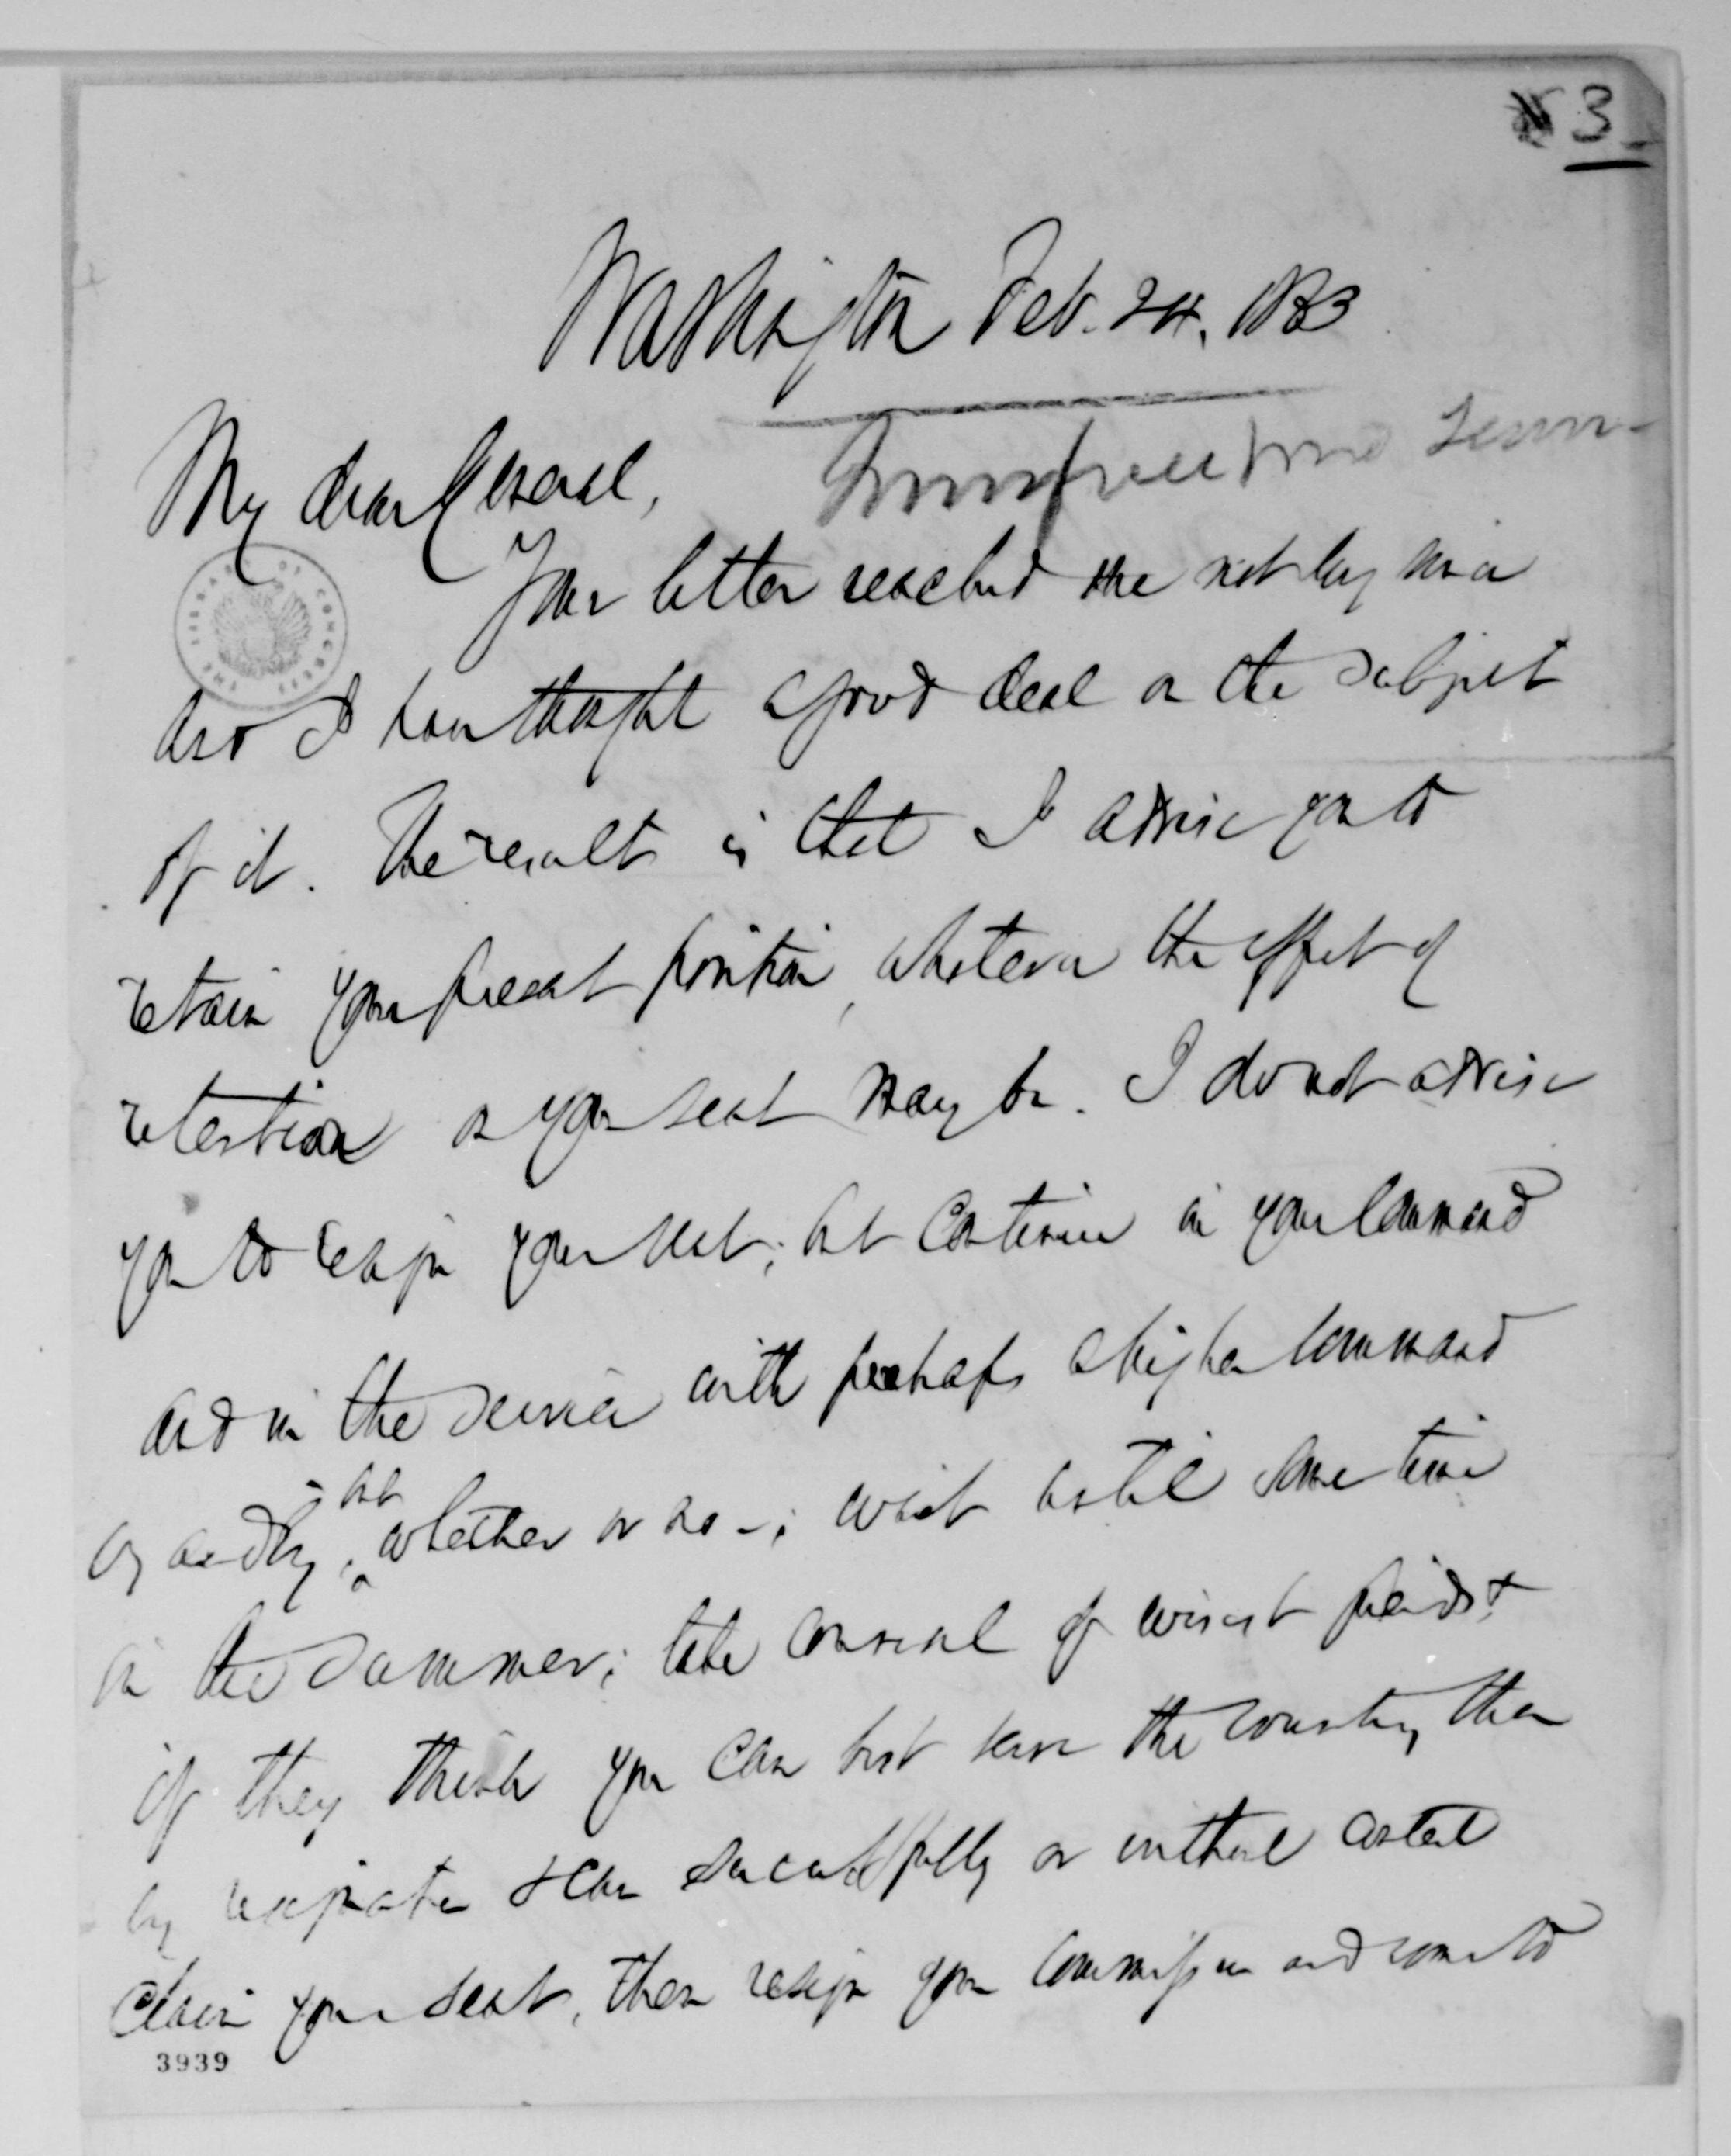 3
Washington Feb. 24, 1863
My dear General,
Your letter reached me not long since
and I have thought a good deal on the subject
of it. The result is that I advise you to
retain your present position, whatever the effect of
retention on your seat may be. I do not advise
you to resign your seat; but continue in your command
and in the service with perhaps a higher command
by and by, but
whether or no -; wait until some time
in the summer; take counsel of wisest friends &
if they think you can best serve the country then
by resignation & can successfully or without contest
claim your seat, then resign your commission and come to
3939
THE LIBRARY OF CONGRESS